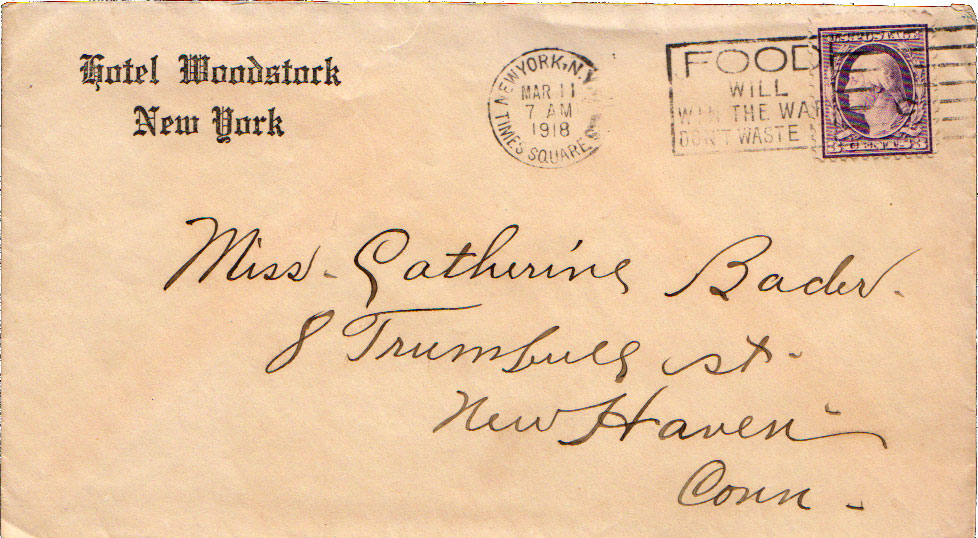 Hotel Woodstock
New York
NEW YORK, N.Y.
MAR 11
7 AM
1918
TIMES SQUARE
FOOD
WILL
WIN THE WAR
DON'T WASTE
Miss. Catherine Bader.
8 Trumbull St.
New Haven
Conn.